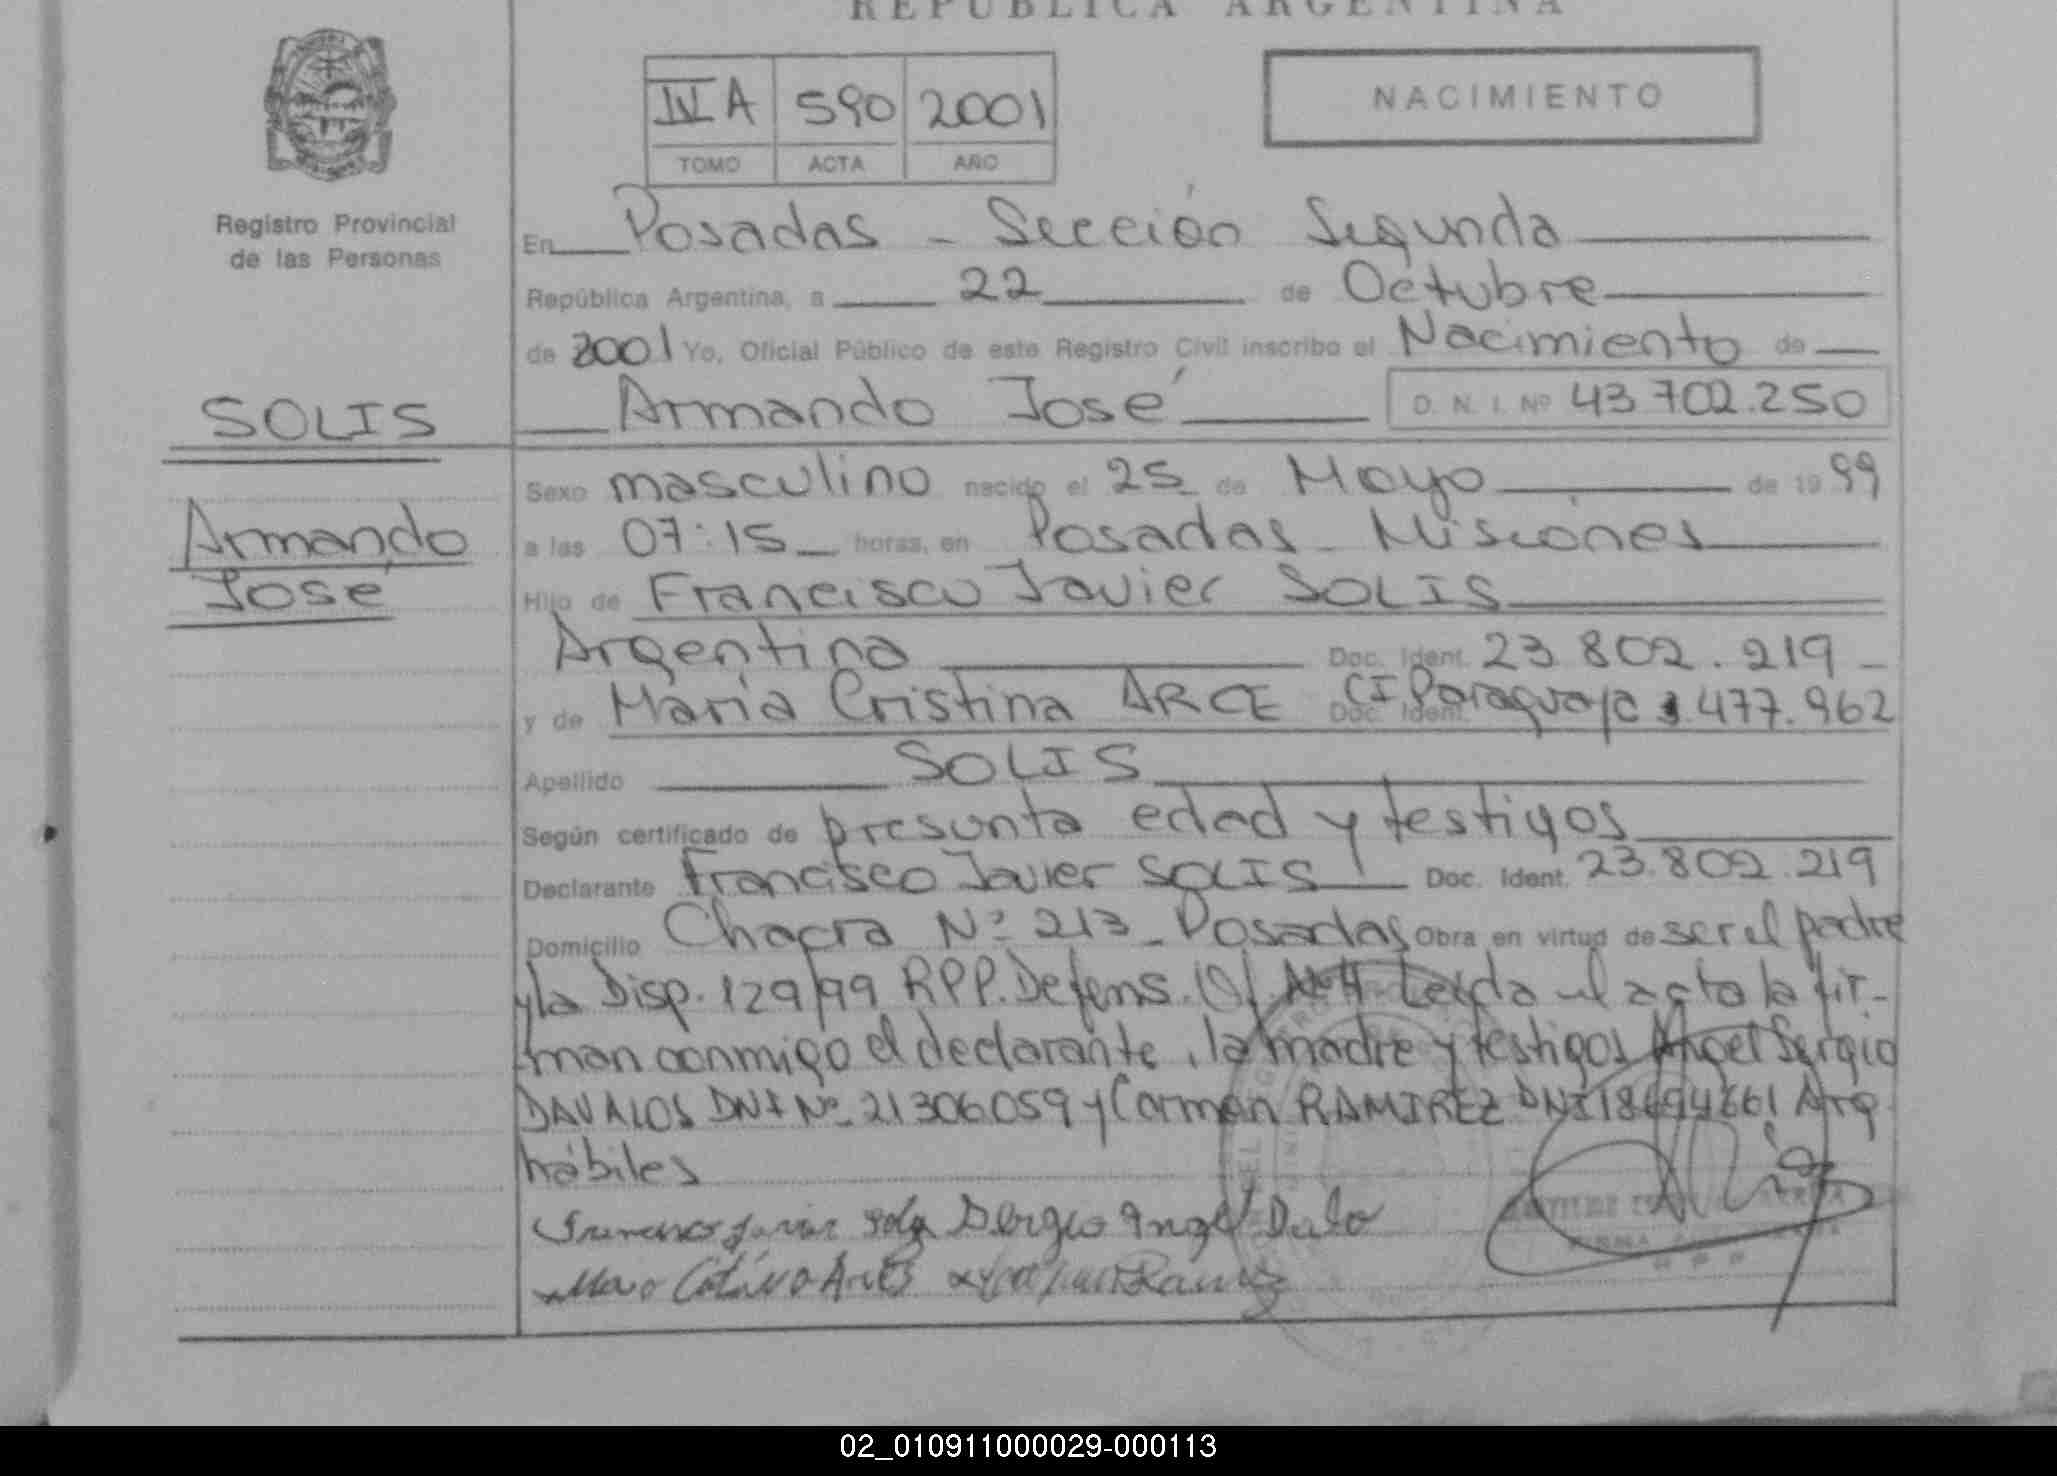 REPUBLICA ARGENTINA
IV A 590 2001
TOMO ACTA AÑO
NACIMIENTO
Registro Provincial
de las Personas
SOLIS
Armando
José
En Posadas - Sección Segunda
República Argentina, a 22 de Octubre
de 2001 Yo, Oficial Público de este Registro Civil inscribo el Nacimiento de
Armando José D. N. I. Nº 43.702.250
Sexo masculino nacido el 25 de Mayo de 19 99
a las 07:15 horas, en Posadas - Misiones
Hijo de Francisco Javier SOLIS
Argentina Doc. Ident. 23.802.219
y de María Cristina ARCE Doc. Ident. CI Paraguaya 477.962
Apellido SOLIS
Según certificado de presunta edad y testigos
Declarante Francisco Javier SOLIS Doc. Ident. 23.802.219
Domicilio Chacra Nº 213 - Posadas Obra en virtud de ser el padre
y la Disp. 129/99 RPP. Defens. Of. Leída el acta la fir-
man conmigo el declarante, la madre y testigos Angel Sergio
DAVALOS DNI Nº 21306059 y Carmen RAMIREZ DNI Arg
hábiles
Sergio Angel
02_010911000029-000113